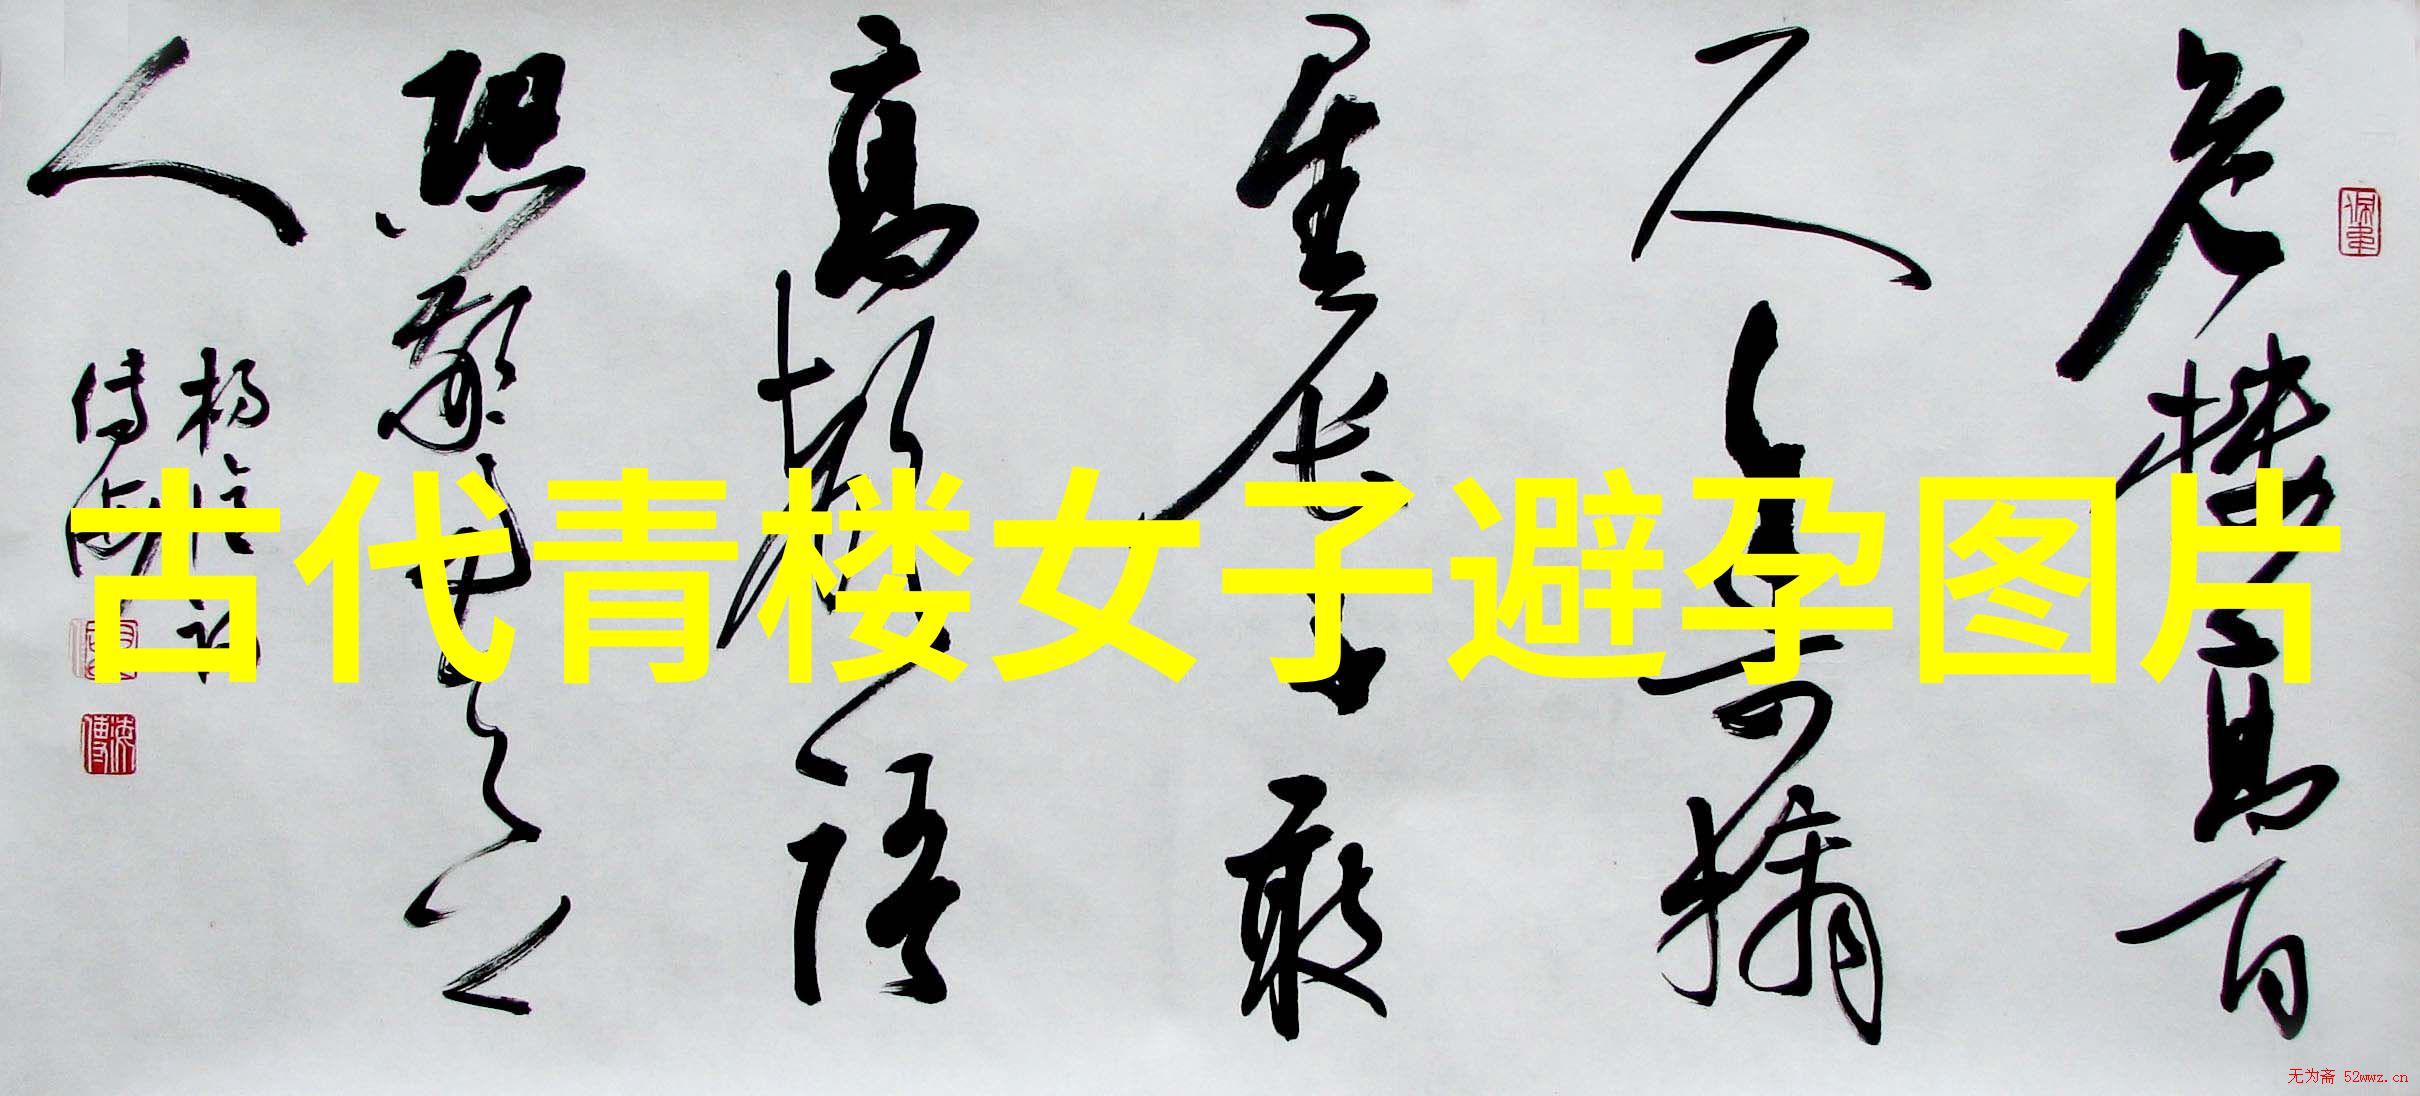 危楼高百
尺手可摘
星辰不敢
高声语
恐惊天上
人
杨亿诗
傅海
古代青楼女子避孕图片
无为斋 52wwz.cn